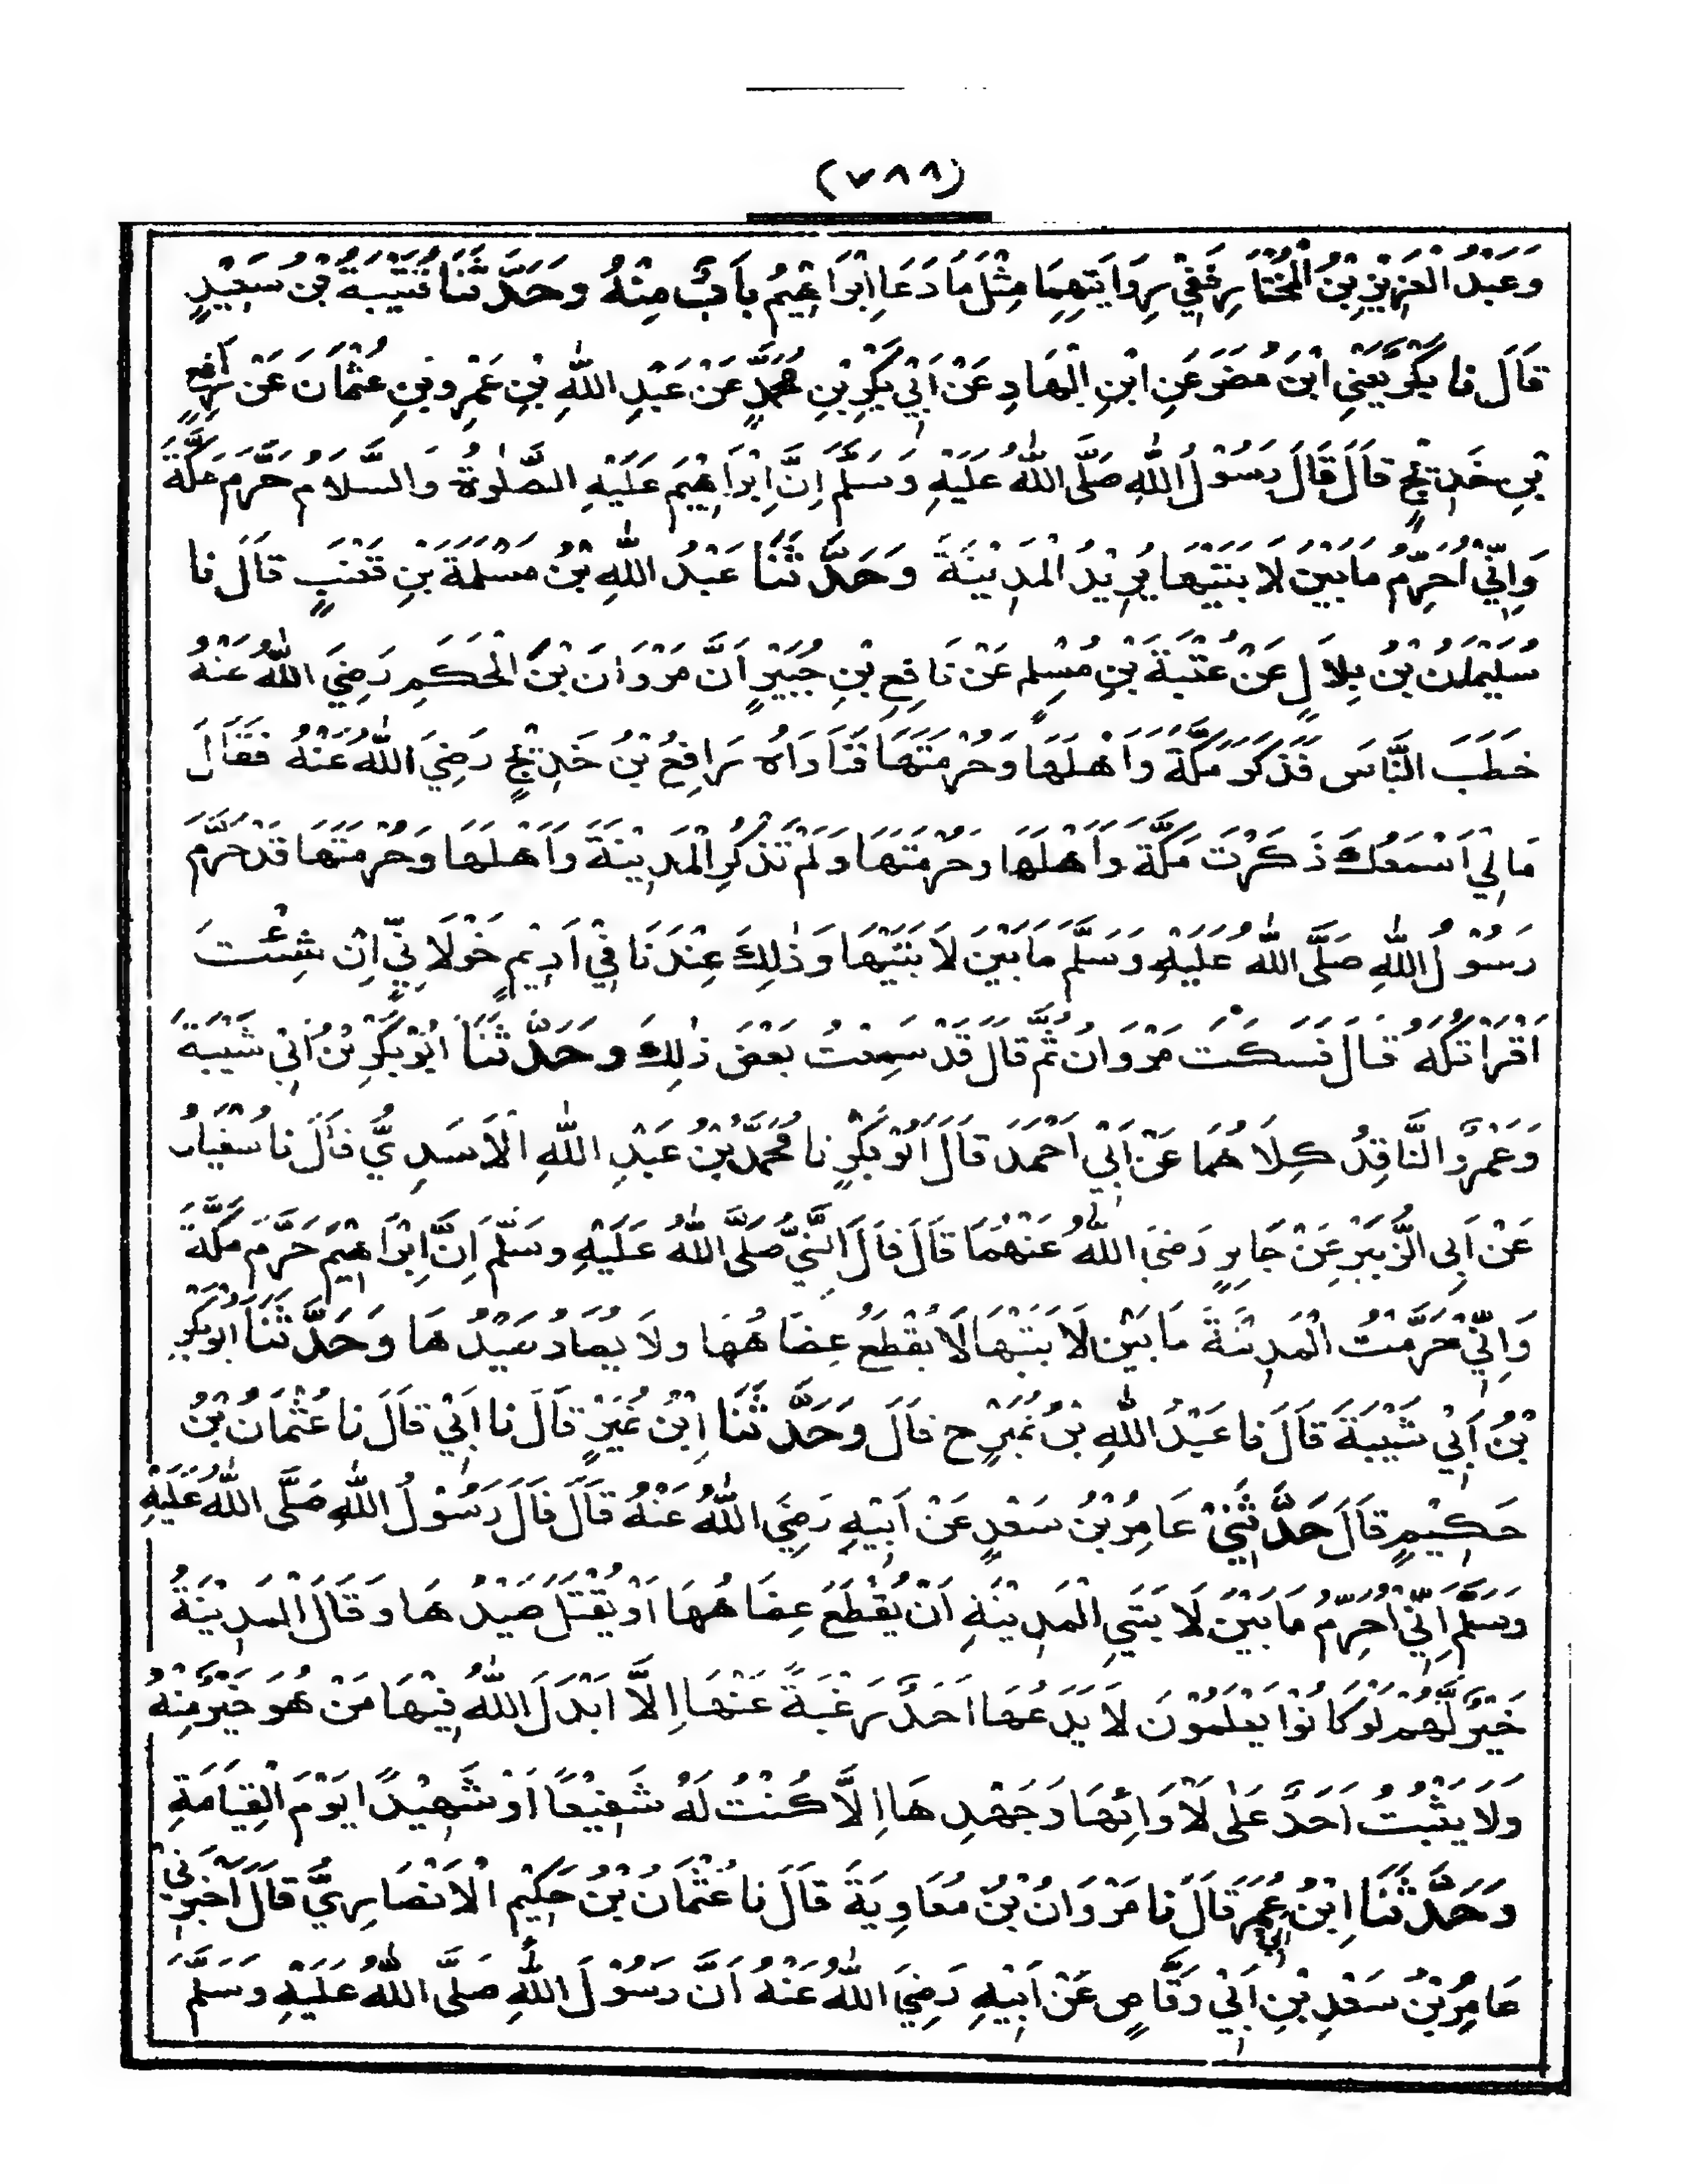 (٧٨٨)
وَعَبْدُ الْعَزِيْزِ بْنُ الْمُخْتَارِ فَفِيْ رِوَايَتِهِمَا مِثْلَ مَا دَعَا اِبْرَاهِيْمُ بَابٌ مِنْهُ وَحَدَّثَنَا قُتَيْبَةُ بْنُ سَعِيْدٍ
قَالَ نا بَكْرٌ يَعْنِيْ ابْنَ مُضَرَ عَنِ ابْنِ الْهَادِ عَنْ اَبِيْ بَكْرِ بْنِ مُحَمَّدٍ عَنْ عَبْدِ اللّٰهِ بْنِ عَمْرِو بْنِ عُثْمَانَ عَنْ رَافِعِ
بْنِ خَدِيْجٍ قَالَ قَالَ رَسُوْلُ اللّٰهِ صَلَّى اللّٰهُ عَلَيْهِ وَسَلَّمَ اِنَّ اِبْرَاهِيْمَ عَلَيْهِ الصَّلٰوةُ وَالسَّلَامُ حَرَّمَ مَكَّةَ
وَاِنِّيْ اُحَرِّمُ مَا بَيْنَ لَا بَتَيْهَا يُرِيْدُ الْمَدِيْنَةَ وَحَدَّثَنَا عَبْدُ اللّٰهِ بْنُ مَسْلَمَةَ بْنِ قَعْنَبٍ قَالَ نا
سُلَيْمٰنُ بْنُ بِلَالٍ عَنْ عُتْبَةَ بْنِ مُسْلِمٍ عَنْ نَافِعِ بْنِ جُبَيْرٍ اَنَّ مَرْوَانَ بْنَ الْحَكَمِ رَضِيَ اللّٰهُ عَنْهُ
خَطَبَ النَّاسَ فَذَكَرَ مَكَّةَ وَاَهْلَهَا وَحُرْمَتَهَا فَنَادَاهُ رَافِعُ بْنُ خَدِيْجٍ رَضِيَ اللّٰهُ عَنْهُ فَقَالَ
مَا لِيْ اَسْمَعُكَ ذَكَرْتَ مَكَّةَ وَاَهْلَهَا وَحُرْمَتَهَا وَلَمْ تَذْكُرِ الْمَدِيْنَةَ وَاَهْلَهَا وَحُرْمَتَهَا قَدْ حَرَّمَ
رَسُوْلُ اللّٰهِ صَلَّى اللّٰهُ عَلَيْهِ وَسَلَّمَ مَا بَيْنَ لَا بَتَيْهَا وَذٰلِكَ عِنْدَنَا فِيْ اَدِيْمٍ خَوْلَانِيٍّ اِنْ شِئْتَ
اَقْرَاْتُكَهُ قَالَ فَسَكَتَ مَرْوَانُ ثُمَّ قَالَ قَدْ سَمِعْتُ بَعْضَ ذٰلِكَ وَحَدَّثَنَا اَبُوْ بَكْرِ بْنُ اَبِيْ شَيْبَةَ
وَعَمْرٌو النَّاقِدُ كِلَاهُمَا عَنْ اَبِيْ اَحْمَدَ قَالَ اَبُوْ بَكْرٍ نا مُحَمَّدُ بْنُ عَبْدِ اللّٰهِ الْاَسَدِيُّ قَالَ نا سُفْيَانُ
عَنْ اَبِى الزُّبَيْرِ عَنْ جَابِرٍ رَضِيَ اللّٰهُ عَنْهُمَا قَالَ قَالَ النَّبِيُّ صَلَّى اللّٰهُ عَلَيْهِ وَسَلَّمَ اِنَّ اِبْرَاهِيْمَ حَرَّمَ مَكَّةَ
وَاِنِّيْ حَرَّمْتُ الْمَدِيْنَةَ مَا بَيْنَ لَا بَتَيْهَا لَا يُقْطَعُ عِضَاهُهَا وَلَا يُصَادُ صَيْدُهَا وَحَدَّثَنَا اَبُوْ بَكْرِ
بْنُ اَبِيْ شَيْبَةَ قَالَ نا عَبْدُ اللّٰهِ بْنُ نُمَيْرٍ ح قَالَ وَحَدَّثَنَا اِبْنُ نُمَيْرٍ قَالَ نا اَبِيْ قَالَ نا عُثْمَانُ بْنُ
حَكِيْمٍ قَالَ حَدَّثَنِيْ عَامِرُ بْنُ سَعْدٍ عَنْ اَبِيْهِ رَضِيَ اللّٰهُ عَنْهُ قَالَ قَالَ رَسُوْلُ اللّٰهِ صَلَّى اللّٰهُ عَلَيْهِ
وَسَلَّمَ اِنِّيْ اُحَرِّمُ مَا بَيْنَ لَا بَتَيِ الْمَدِيْنَةِ اَنْ يُقْطَعَ عِضَاهُهَا اَوْ يُقْتَلَ صَيْدُهَا وَقَالَ الْمَدِيْنَةُ
خَيْرٌ لَّهُمْ لَوْ كَانُوْا يَعْلَمُوْنَ لَا يَدَعُهَا اَحَدٌ رَغْبَةً عَنْهَا اِلَّا اَبْدَلَ اللّٰهُ فِيْهَا مَنْ هُوَ خَيْرٌ مِنْهُ
وَلَا يَثْبُتُ اَحَدٌ عَلٰى لَاْوَائِهَا وَجَهْدِهَا اِلَّا كُنْتُ لَهُ شَفِيْعًا اَوْ شَهِيْدًا يَوْمَ الْقِيَامَةِ
وَحَدَّثَنَا اِبْنُ اَبِيْ عُمَرَ قَالَ نا مَرْوَانُ بْنُ مُعَاوِيَةَ قَالَ نا عُثْمَانُ بْنُ حَكِيْمِ الْاَنْصَارِيُّ قَالَ اَخْبَرَنِيْ
عَامِرُ بْنُ سَعْدِ بْنِ اَبِيْ وَقَّاصٍ عَنْ اَبِيْهِ رَضِيَ اللّٰهُ عَنْهُ اَنَّ رَسُوْلَ اللّٰهِ صَلَّى اللّٰهُ عَلَيْهِ وَسَلَّمَ